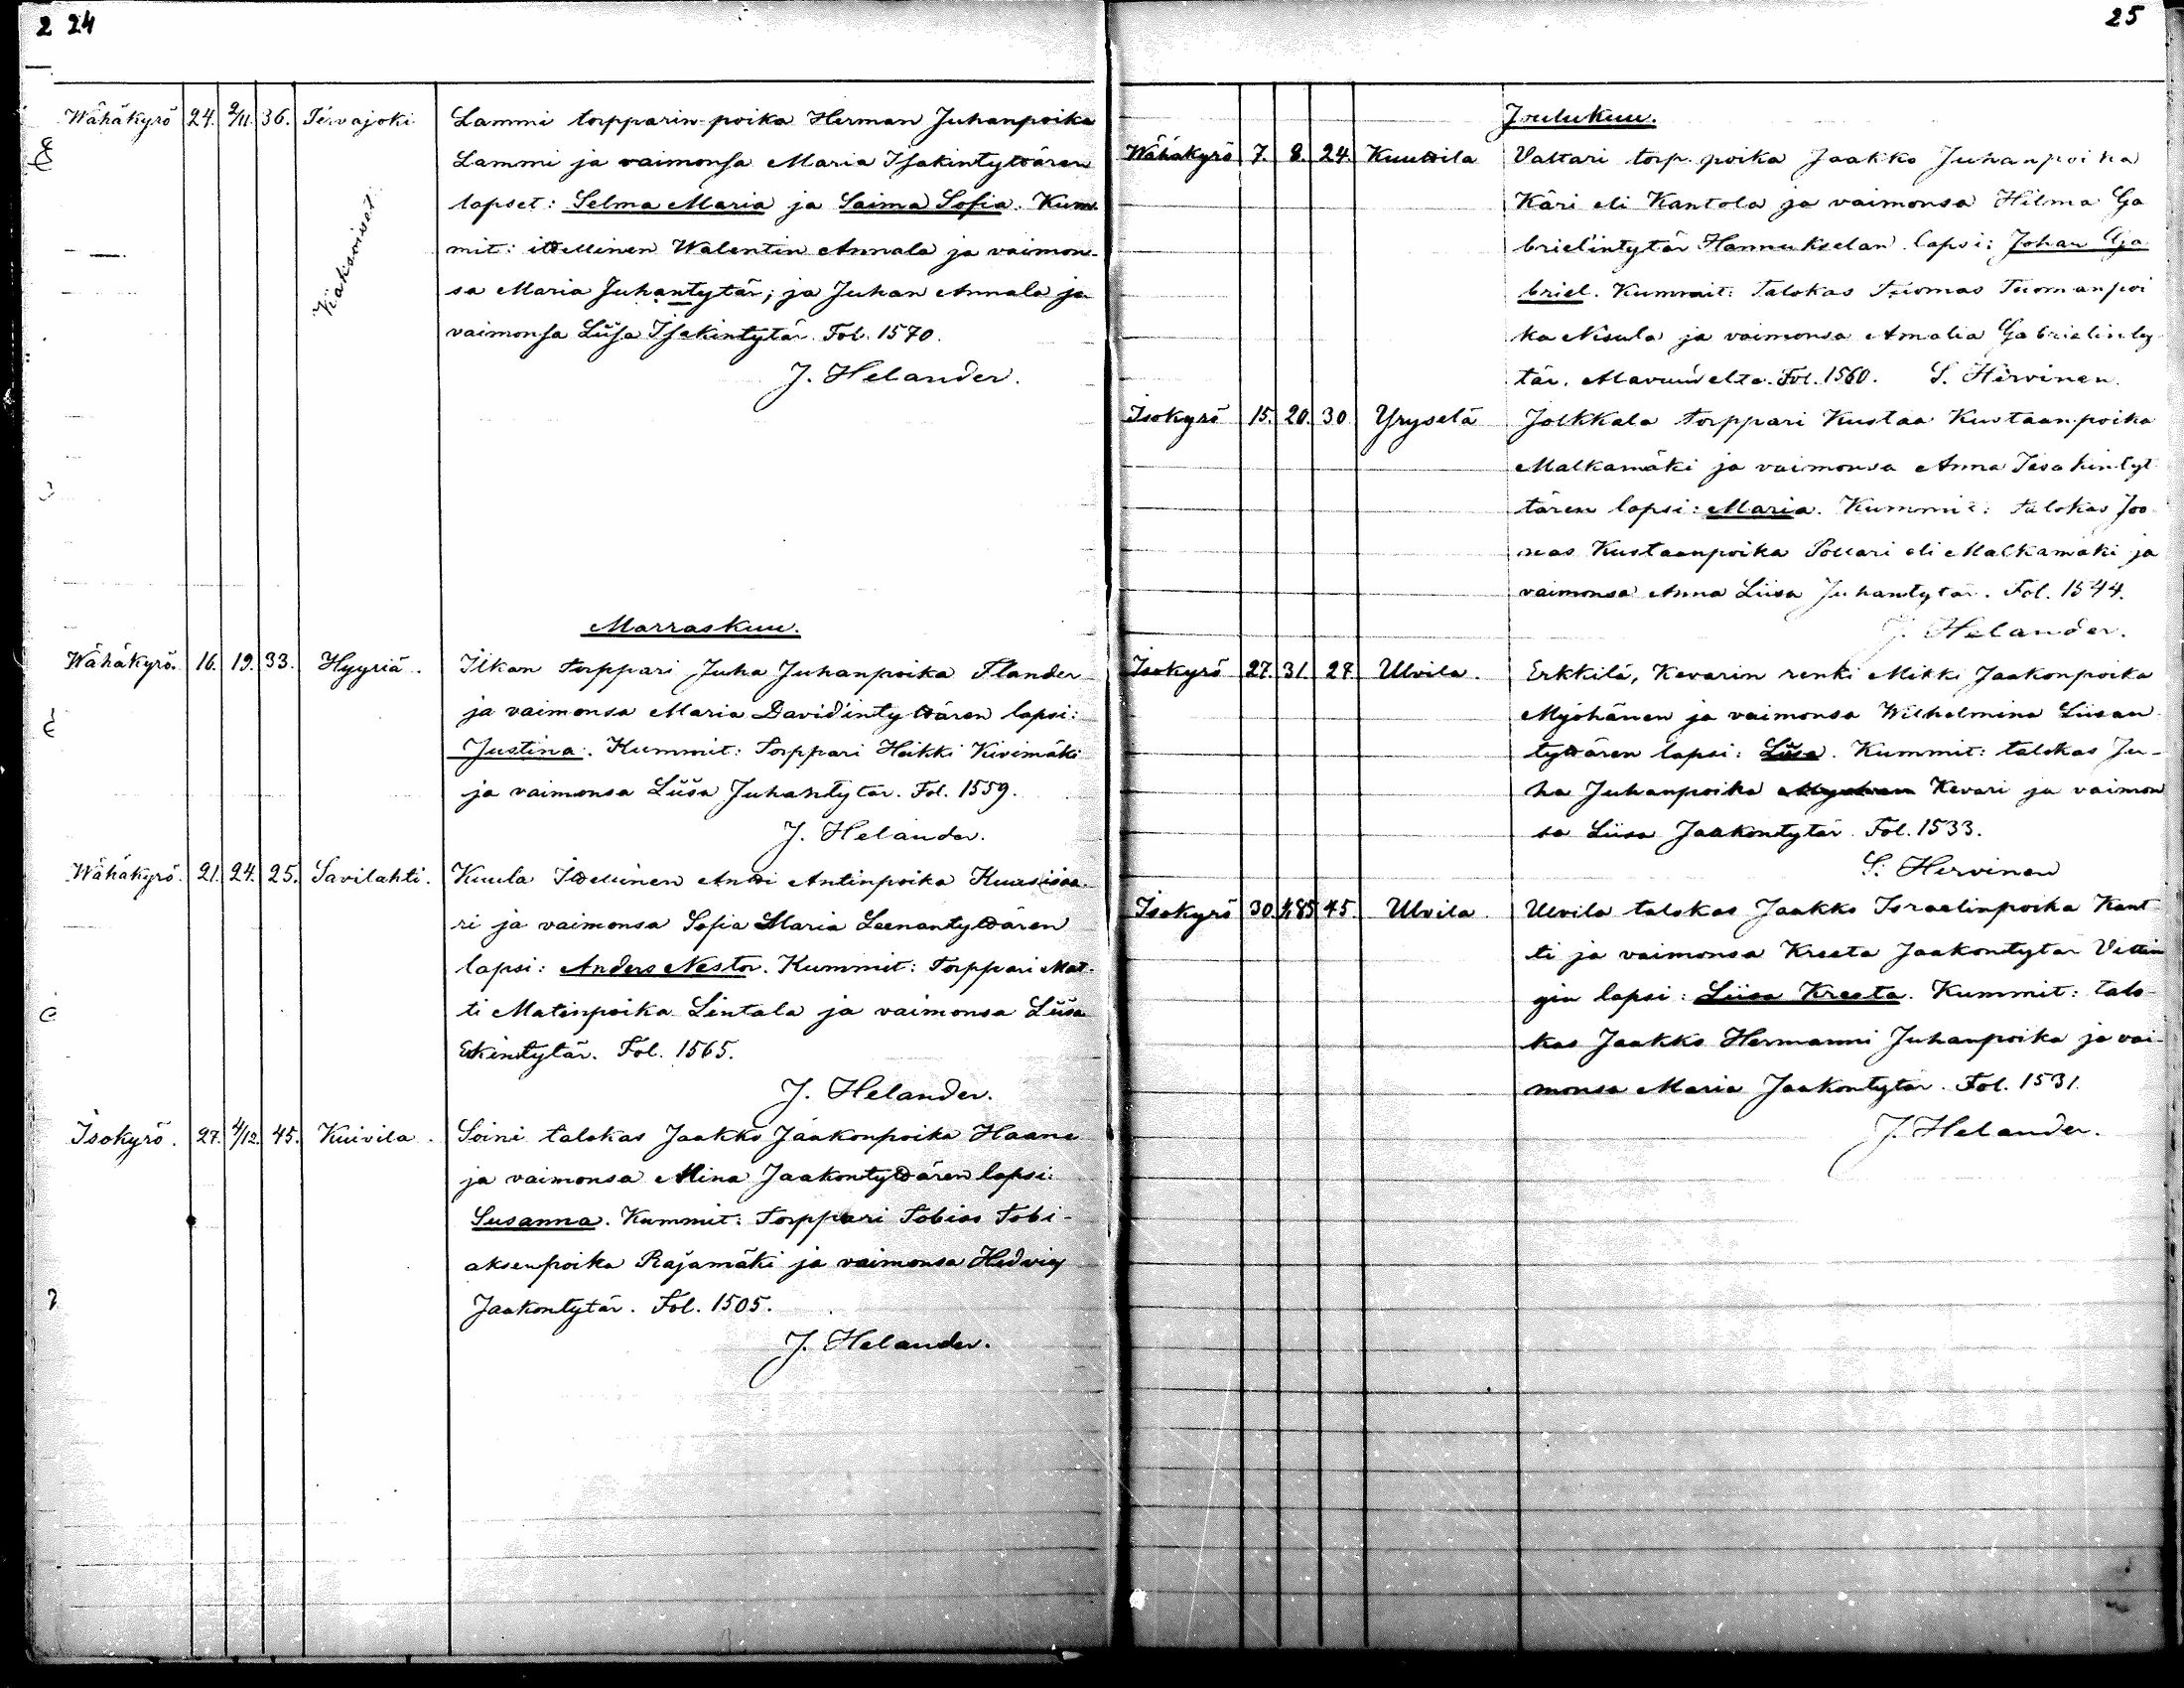 2 24
Wähäkyrö 24. 2/11. 36. Tervajoki Lammi torpparin-poika Herman Juhanpoika
Lammi ja vaimonsa Maria Isakintyttären
lapset: Selma Maria ja Saima Sofia. Kum-
mit: itsellinen Walentin Annala ja vaimon-
sa Maria Juhantytär; ja Juhan Annala ja
vaimonsa Liisa Isakintytär. Fol. 1570.
Kaksoiset
J. Helander.
Marraskuu.
Wähäkyrö. 16. 19. 33. Hyyriä. Ilkan torppari Juha Juhanpoika Flander
ja vaimonsa Maria Davidintyttären lapsi:
Justina. Kummit: Torppari Heikki Kivimäki
ja vaimonsa Liisa Juhantytär. Fol. 1559.
J. Helander.
Wähäkyrö. 21. 24. 25. Savilahti. Kuula Itsellinen Antti Antinpoika Kuusisaa-
ri ja vaimonsa Sofia Maria Leenantyttären
lapsi: Anders Nestor. Kummit: Torppari Mat-
ti Matinpoika Lintala ja vaimonsa Liisa
Erkintytär. Fol. 1565.
J. Helander.
Isokyrö. 27. 4/12. 45. Kuivila. Soini talokas Jaakko Jaakonpoika Haana
ja vaimonsa Mina Jaakontyttären lapsi:
Susanna. Kummit: Torppari Tobias Tobi-
aksenpoika Rajamäki ja vaimonsa Hedvig
Jaakontytär. Fol. 1505.
J. Helander.
25
Joulukuu.
Wähäkyrö 7. 8. 24 Kuuttila Valtari torp. poika Jaakko Juhanpoika
Käri eli Kantola ja vaimonsa Hilma Ga
brielintytär Hannukselan lapsi: Johan Ga
briel. Kummit: Talokas Tuomas Tuomanpoi
ka Nisula ja vaimonsa Amalia Gabrielinty
tär. Fol. 1560. S. Hirvinen.
Isokyrö 15. 20. 30 Yryselä Jolkkala torppari Kustaa Kustaanpoika
Malkamäki ja vaimonsa Anna Iisakintyt
tären lapsi: Maria. Kummit: talokas Joo
nas Kustaanpoika Pollari eli Malkamäki ja
vaimonsa Anna Liisa Juhantytär. Fol. 1544.
J. Helander.
Isokyrö 27. 31. 28 Ulvila. Erkkilä, Kevarin renki Mikki Jaakonpoika
Myöhänen ja vaimonsa Wilhelmina Liisan
tyttären lapsi: Liisa. Kummit: talokas Ju-
ha Juhanpoika Kevari ja vaimon
sa Liisa Jaakontytär. Fol. 1533.
S. Hirvinen
Isokyrö 30. 1/1 85 45. Ulvila. Ulvila talokas Jaakko Israelinpoika Kant
ti ja vaimonsa Kreeta Jaakontytär Vittin
gin lapsi: Liisa Kreeta. Kummit: talo-
kas Jaakko Hermanni Juhanpoika ja vai-
monsa Maria Jaakontytär. Fol. 1531.
J. Helander.